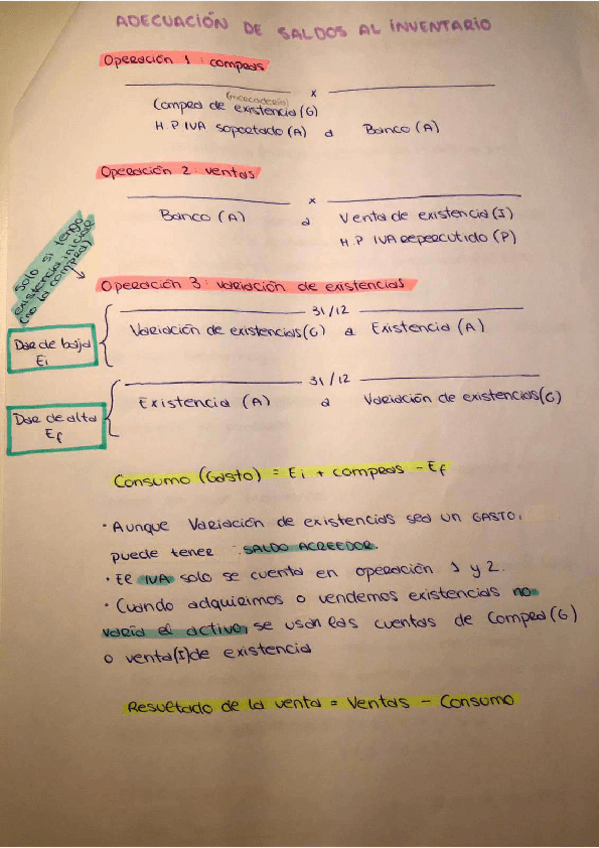 ADECUACIÓN DE SALDOS AL INVENTARIO
Operación 1 : compras
x
(mercadería)
Compra de existencia (G)
H.P IVA soportado (A) a Banco (A)
Operación 2 : ventas
x
Banco (A) a Venta de existencia (I)
H.P IVA repercutido (P)
solo si tengo
existencia inicial
(no la compra)
Operación 3 : variación de existencias
31/12
Variación de existencias (G) a Existencia (A)
Dar de baja
Ei
31/12
Existencia (A) a Variación de existencias (G)
Dar de alta
Ef
Consumo (Gasto) = Ei + compras - Ef
· Aunque Variación de existencias sea un GASTO,
puede tener SALDO ACREEDOR.
· El IVA solo se cuenta en operación 1 y 2.
· Cuando adquirimos o vendemos existencias no
varía el activo, se usan las cuentas de Compra (G)
o venta (I) de existencia
Resultado de la venta = Ventas - Consumo